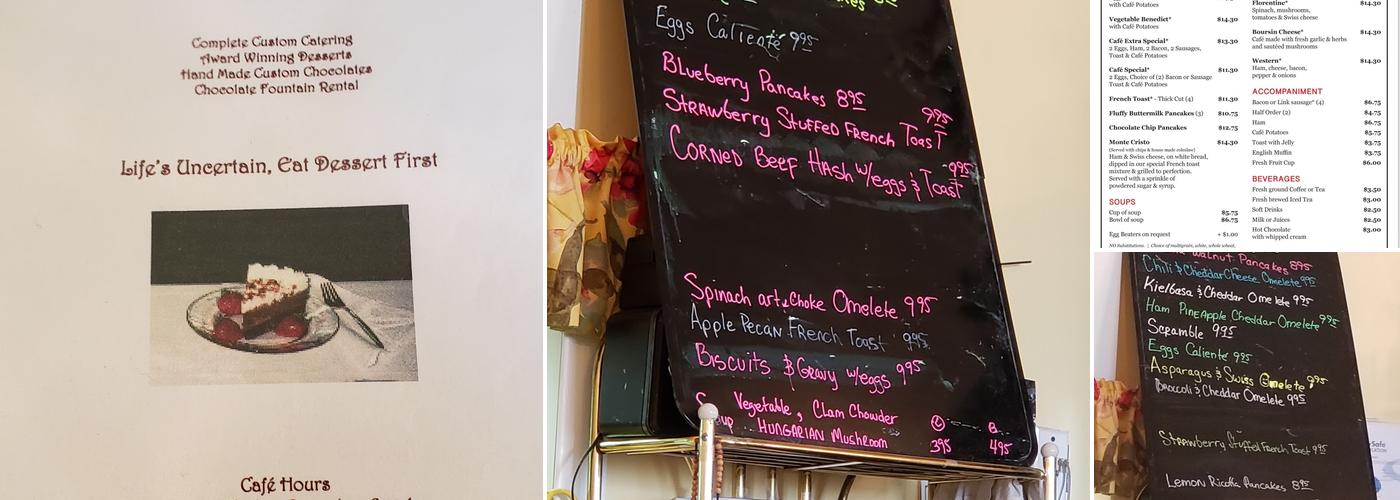 Complete Custom Catering
Award Winning Desserts
Hand Made Custom Chocolates
Chocolate Fountain Rental
Life's Uncertain, Eat Dessert First
Café Hours
Eggs Caliente 9.95
Blueberry Pancakes 8.95
Strawberry Stuffed French Toast 9.95
Corned Beef Hash w/eggs & Toast 9.95
Spinach artichoke Omelete 9.95
Apple Pecan French Toast 9.95
Biscuits & Gravy w/eggs 9.95
Soup Vegetable, Clam Chowder
Hungarian Mushroom
C B
3.95 4.95
with Café Potatoes
Vegetable Benedict* $14.30
with Café Potatoes
Café Extra Special* $13.30
2 Eggs, Ham, 2 Bacon, 2 Sausages,
Toast & Café Potatoes
Café Special* $11.30
2 Eggs, Choice of (2) Bacon or Sausage
Toast & Café Potatoes
French Toast* - Thick Cut (4) $11.30
Fluffy Buttermilk Pancakes (3) $10.75
Chocolate Chip Pancakes $12.75
Monte Cristo $14.30
(Served with chips & house made coleslaw)
Ham & Swiss cheese, on white bread,
dipped in our special French toast
mixture & grilled to perfection.
Served with a sprinkle of
powdered sugar & syrup.
SOUPS
Cup of soup $5.75
Bowl of soup $6.75
Egg Beaters on request + $1.00
NO Substitutions. | Choice of multigrain, white, whole wheat,
Florentine* $14.30
Spinach, mushrooms,
tomatoes & Swiss cheese
Boursin Cheese* $14.30
Café made with fresh garlic & herbs
and sautéed mushrooms
Western* $14.30
Ham, cheese, bacon,
pepper & onions
ACCOMPANIMENT
Bacon or Link sausage* (4) $6.75
Half Order (2) $4.75
Ham $6.75
Café Potatoes $5.75
Toast with Jelly $3.75
English Muffin $3.75
Fresh Fruit Cup $6.00
BEVERAGES
Fresh ground Coffee or Tea $3.50
Fresh brewed Iced Tea $3.00
Soft Drinks $2.50
Milk or Juices $2.50
Hot Chocolate $3.00
with whipped cream
Walnut Pancakes 8.95
Chili & Cheddar Cheese Omelete 9.95
Kielbasa & Cheddar Omelete 9.95
Ham Pineapple Cheddar Omelete 9.95
Scramble 9.95
Eggs Caliente 9.95
Asparagus & Swiss Omelete 9.95
Broccoli & Cheddar Omelete 9.95
Strawberry Stuffed French Toast 9.95
Lemon Ricotta Pancakes 8.95